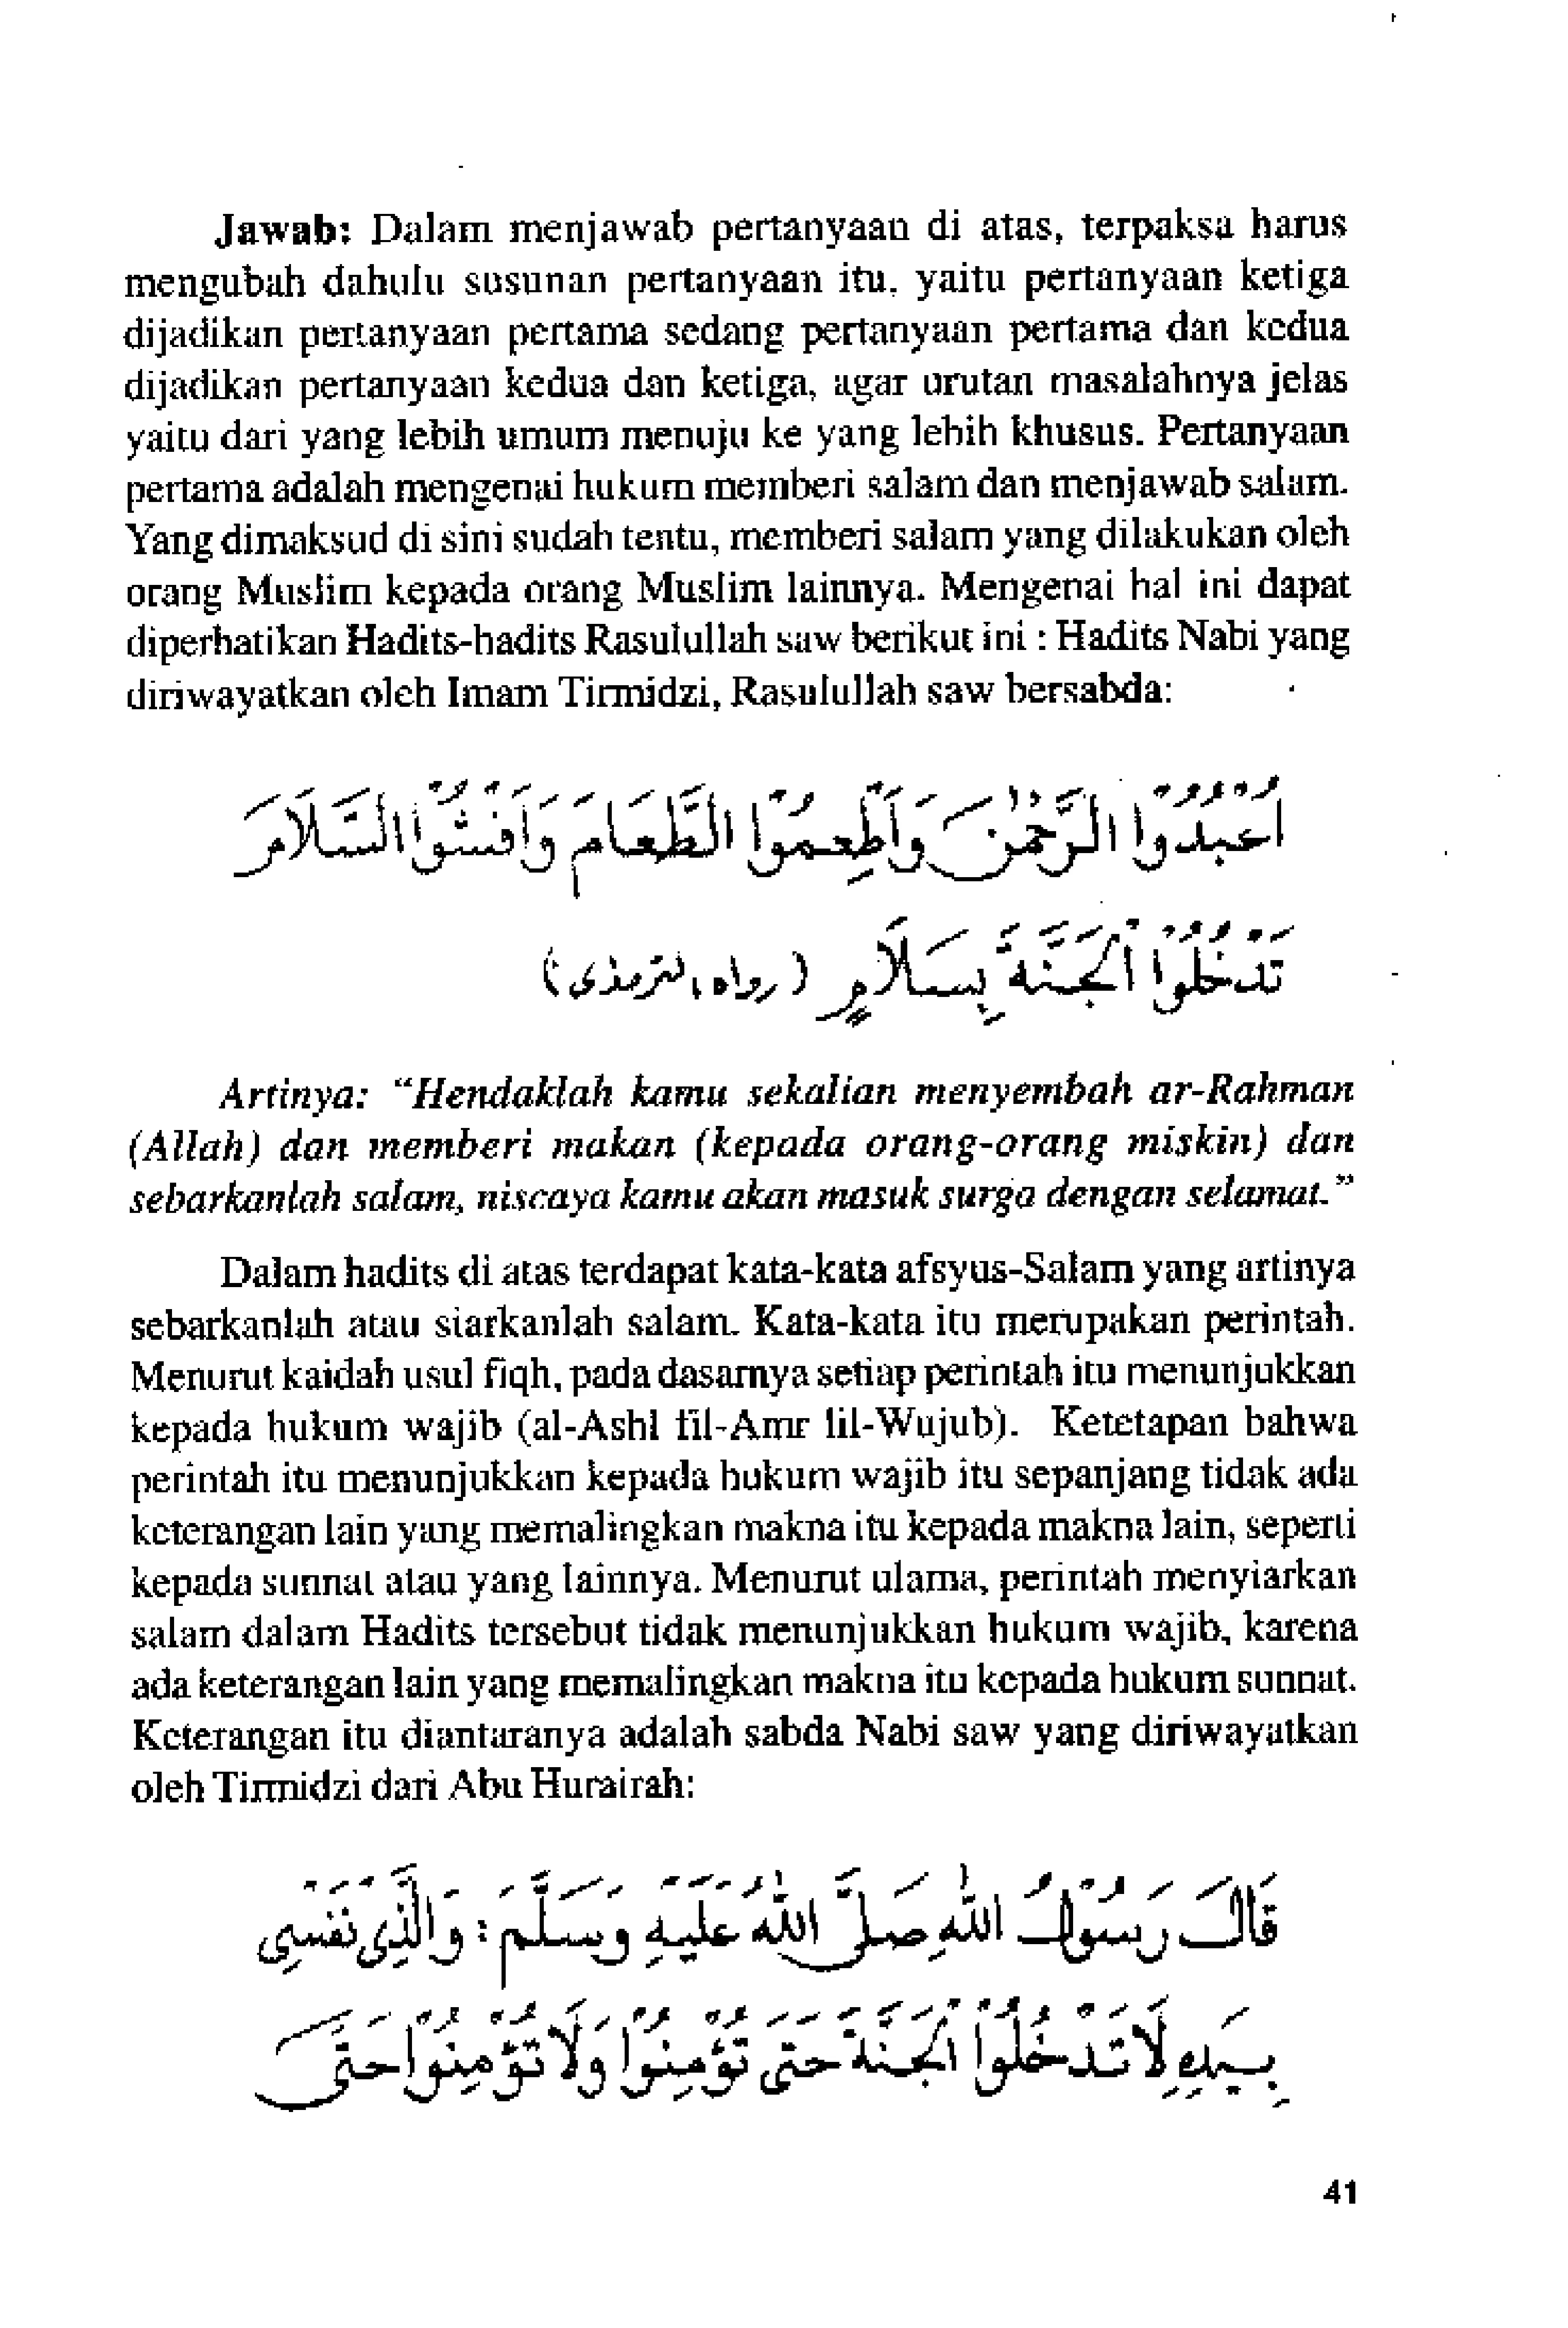 Jawab: Dalam menjawab pertanyaan di atas, terpaksa harus
mengubah dahulu susunan pertanyaan itu, yaitu pertanyaan ketiga
dijadikan pertanyaan pertama sedang pertanyaan pertama dan kedua
dijadikan pertanyaan kedua dan ketiga, agar urutan masalahnya jelas
yaitu dari yang lebih umum menuju ke yang lebih khusus. Pertanyaan
pertama adalah mengenai hukum memberi salam dan menjawab salam.
Yang dimaksud di sini sudah tentu, memberi salam yang dilakukan oleh
orang Muslim kepada orang Muslim lainnya. Mengenai hal ini dapat
diperhatikan Hadits-hadits Rasulullah saw berikut ini : Hadits Nabi yang
diriwayatkan oleh Imam Tirmidzi, Rasulullah saw bersabda:
اُعْبُدُوْا الرَّحْمٰنَ وَاَطْعِمُوْا الطَّعَامَ وَافْشُوْا السَّلَامَ
تَدْخُلُوْا الْجَنَّةَ بِسَلَامٍ (رواه الترمذى)
Artinya: “Hendaklah kamu sekalian menyembah ar-Rahman
(Allah) dan memberi makan (kepada orang-orang miskin) dan
sebarkanlah salam, niscaya kamu akan masuk surga dengan selamat.”
Dalam hadits di atas terdapat kata-kata afsyus-Salam yang artinya
sebarkanlah atau siarkanlah salam. Kata-kata itu merupakan perintah.
Menurut kaidah usul fiqh, pada dasarnya setiap perintah itu menunjukkan
kepada hukum wajib (al-Ashl fil-Amr lil-Wujub). Ketetapan bahwa
perintah itu menunjukkan kepada hukum wajib itu sepanjang tidak ada
keterangan lain yang memalingkan makna itu kepada makna lain, seperti
kepada sunnat atau yang lainnya. Menurut ulama, perintah menyiarkan
salam dalam Hadits tersebut tidak menunjukkan hukum wajib, karena
ada keterangan lain yang memalingkan makna itu kepada hukum sunnat.
Keterangan itu diantaranya adalah sabda Nabi saw yang diriwayatkan
oleh Tirmidzi dari Abu Hurairah:
قَالَ رَسُوْلُ اللّٰهِ صَلَّى اللّٰهُ عَلَيْهِ وَسَلَّمَ : وَالَّذِى نَفْسِى
بِيَدِهِ لَا تَدْخُلُوْا الْجَنَّةَ حَتَّى تُؤْمِنُوْا وَلَا تُؤْمِنُوْا حَتَّى
41